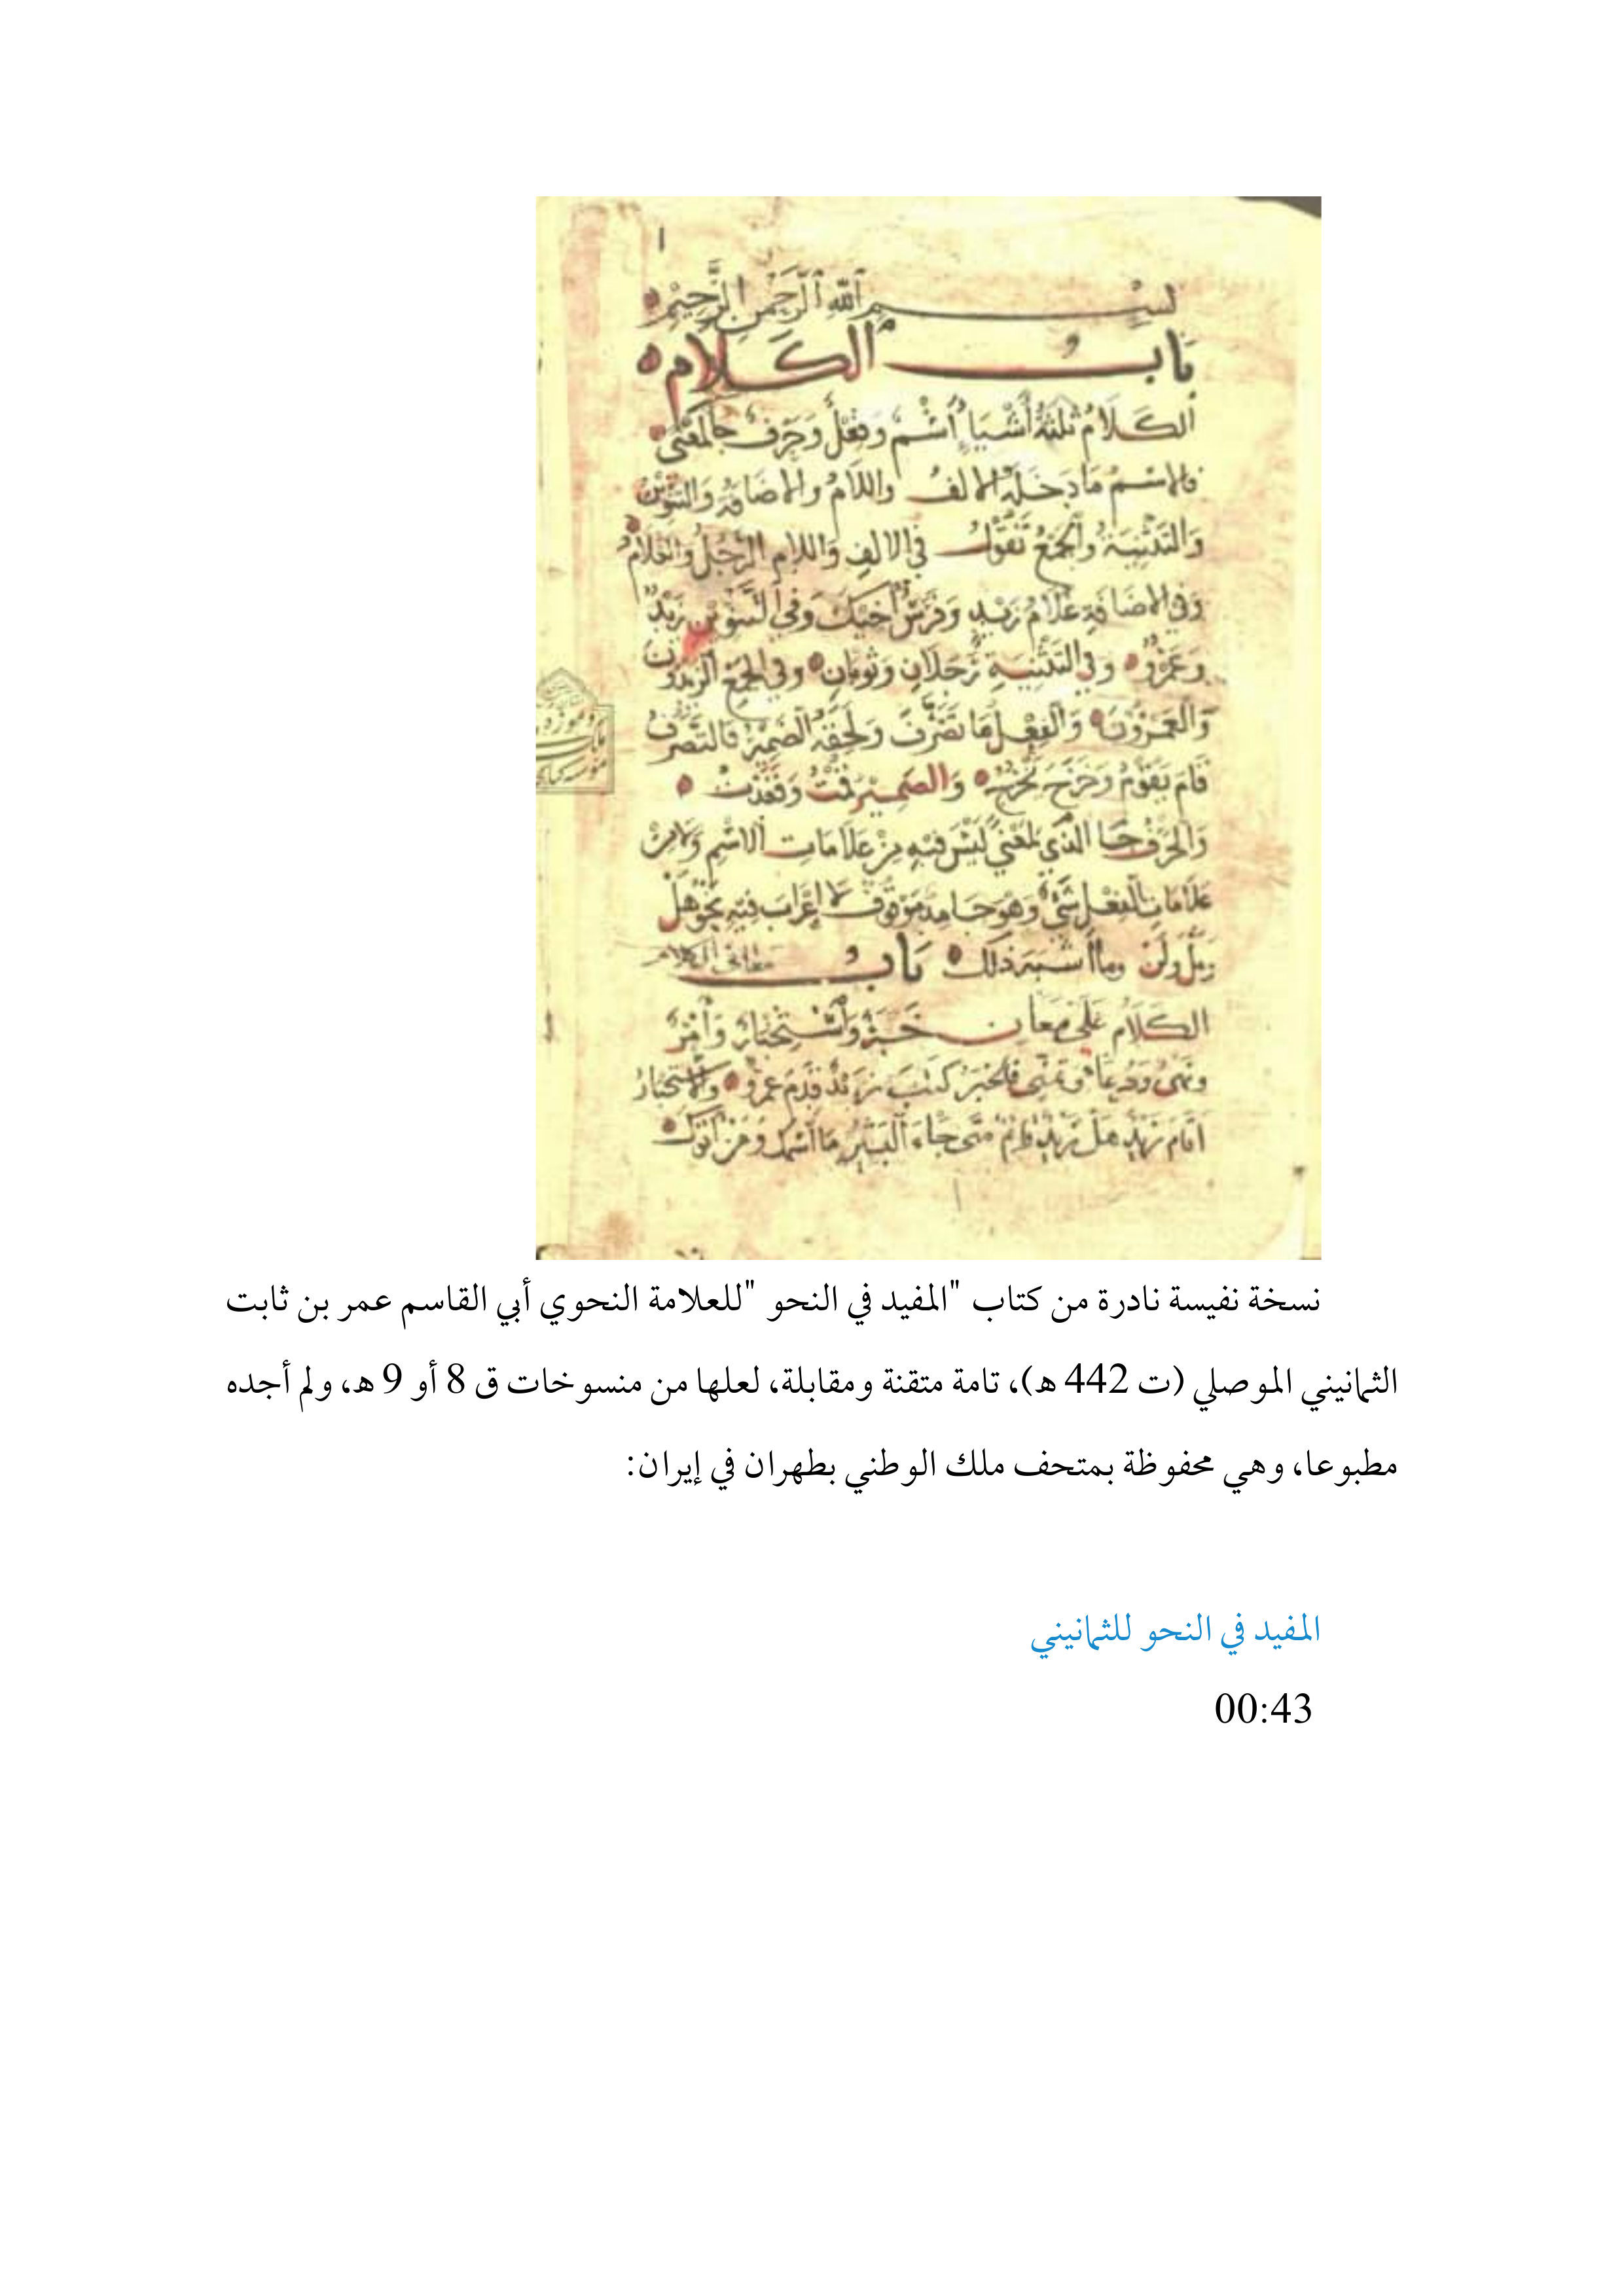 ١
بسم الله الرحمن الرحيم
باب الكلام
الكَلَامُ ثَلَثَةُ أَشْيَاءٍ اسْمٌ وَفِعْلٌ وَحَرْفٌ جَا لِمَعْنًى
فالاسْمُ مَا دَخَلَهُ الالفُ واللَّامُ والاضَافَةُ وَالتَّنْوِينُ
وَالتَّثْنِيَةُ وَالجَمْعُ تَقُولُ في الالفِ وَاللام الرَّجُلُ وَالغُلَامُ
وَفي الاضَافَةِ غُلَامُ زَيْدٍ وَفَرَسُ أَخِيكَ وَفي التَّنْوِينِ زَيْدٌ
وَعَمْرٌو وفي التَّثْنِيَةِ رَجُلَانِ وَثَوْبَانِ وفي الجَمْعِ الزيدُونَ
وَالعَمْرُونَ وَالفِعْلُ مَا تَصَرَّفَ وَلَحِقَهُ الضَّمِيرُ فَالتَّصَرُّفُ
قَامَ يَقُومُ وَخَرَجَ يَخْرُجُ وَالضمير قُمْتُ وَقَعَدْتُ
وَالحَرْفُ جَا الذي لمَعْنًى لَيْسَ فِيهِ مِنْ عَلَامَاتِ الاسْمِ وَلا مِنْ
عَلَامَاتِ الفِعْلِ شَيْءٌ وَهُوَ جَامِدٌ مَوْقُوفٌ لا إِعْرَابَ فِيهِ نَحْوُ هَلْ
وبَلْ ولَنْ وما أشبَهَ ذلك بَابُ معاني الكلام
الكَلَامُ عَلَى مَعَانٍ خَبَرٌ وَاسْتِخْبَارٌ وَأَمْرٌ
وَنَهْيٌ وَدُعَاءٌ وَتَمَنِّي فالخَبَرُ كتَبَ زَيْدٌ قَدِمَ عَمْرٌو والاسْتِخْبَارُ
أَقَامَ زَيْدٌ هَلْ زَيْدٌ قائمٌ مَتَى جَاءَ البَشِيرُ مَا اسْمُكَ وَمَنْ أَبُوكَ
نسخة نفيسة نادرة من كتاب "المفيد في النحو "للعلامة النحوي أبي القاسم عمر بن ثابت
الثمانيني الموصلي (ت 442 هـ)، تامة متقنة ومقابلة، لعلها من منسوخات ق 8 أو 9 هـ، ولم أجده
مطبوعا، وهي محفوظة بمتحف ملك الوطني بطهران في إيران:
المفيد في النحو للثمانيني
00:43